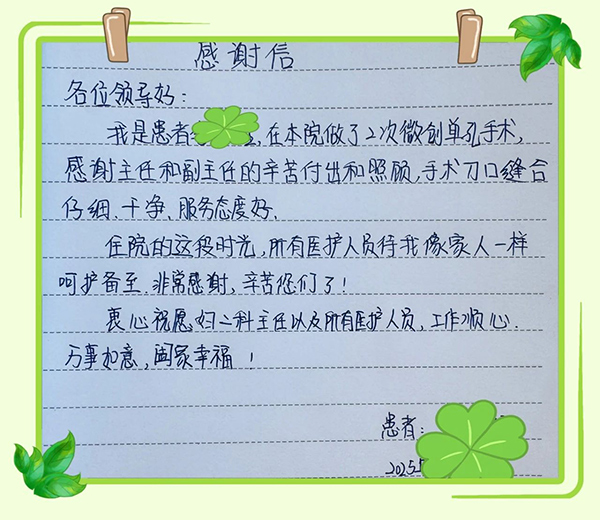 感谢信
各位领导好：
我是患者，在本院做了2次微创单孔手术，
感谢主任和副主任的辛苦付出和照顾，手术刀口缝合
仔细、干净、服务态度好、
住院的这段时光，所有医护人员待我像家人一样
呵护备至、非常感谢，辛苦您们了！
衷心祝愿妇二科主任以及所有医护人员，工作顺心．
万事如意，阖家幸福！
患者：
2025